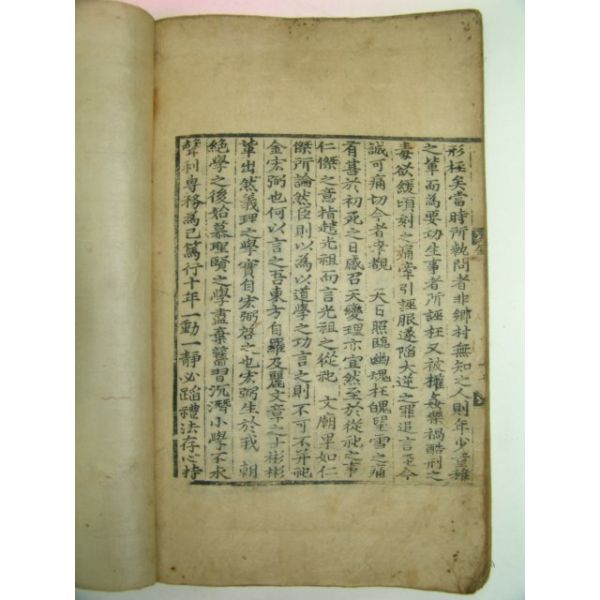 形極矣當時所執問者非鄉村無知之人則年少
之輩而為要功生事者所誣枉又被權姦樂禍酷刑之
毒欲緩頃刻之痛牽引誣服遂陷大逆之罪追言至今
誠可痛切今者幸覩 天日照臨幽魂枉魄望雪之痛
有甚於初死之日感召天變理亦宜然至於從祀之事
仁傑之意指趙光祖而言光祖之從祀 文廟畢如仁
傑所論然臣則以為以道學之功言之則不可不幷祀
金宏弼也何以言之吾東方自羅及麗文章之士彬彬
輩出然義理之學實自宏弼啓之也宏弼生於我 朝
絶學之後始慕聖賢之學盡棄舊習沉潛小學不求
聲利專務為己篤行十年一動一靜必蹈禮法存心持